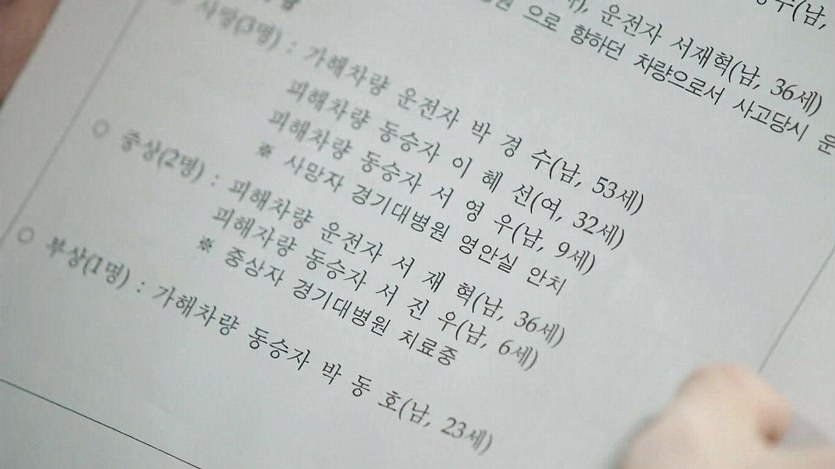 우(남,
원 으로 향하던 차량으로서 사고당시 운
), 운전자 서재혁(남, 36세)
사망(3명) : 가해차량 운전자 박 경 수(남, 53세)
피해차량 동승자 이 혜 선(여, 32세)
피해차량 동승자 서 영 우(남, 9세)
※ 사망자 경기대병원 영안실 안치
○ 중상(2명) : 피해차량 운전자 서 재 혁(남, 36세)
피해차량 동승자 서 진 우(남, 6세)
※ 중상자 경기대병원 치료중
○ 부상(1명) : 가해차량 동승자 박 동 호(남, 23세)